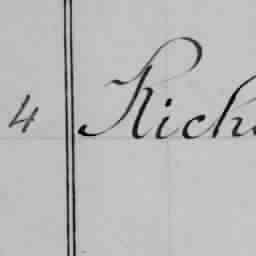 4 Rich